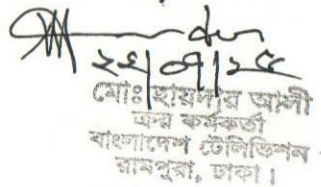 ২২|০৭|১৫
মোঃ হায়দার আলী
ক্রয় কর্মকর্তা
বাংলাদেশ টেলিভিশন
রামপুরা, ঢাকা।